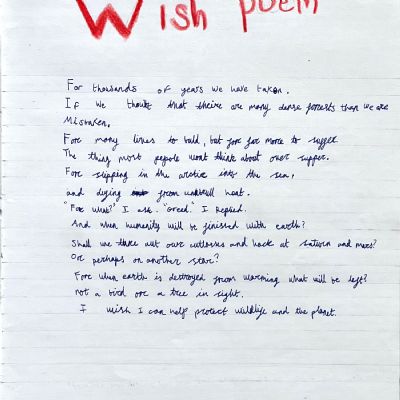 Wish poem
For thousands of years we have taken.
If we think that theire are many dense forests then we are
Mistaken.
Fore many lines to build, but fore far more to suffer
The thing most pepole wont think about over supper.
Fore slipping in the arctic into the sea,
and dying from heat.
"Fore what?" I ask. "Greed." I Replied.
And when humanity will be finished with earth?
Shall we take out our cutlasses and hack at saturn and mars?
Or perhaps on another star?
Fore when earth is destroyed from warming what will be left?
not a bird ore a tree in sight.
I wish I can help protect wildlife and the planet.